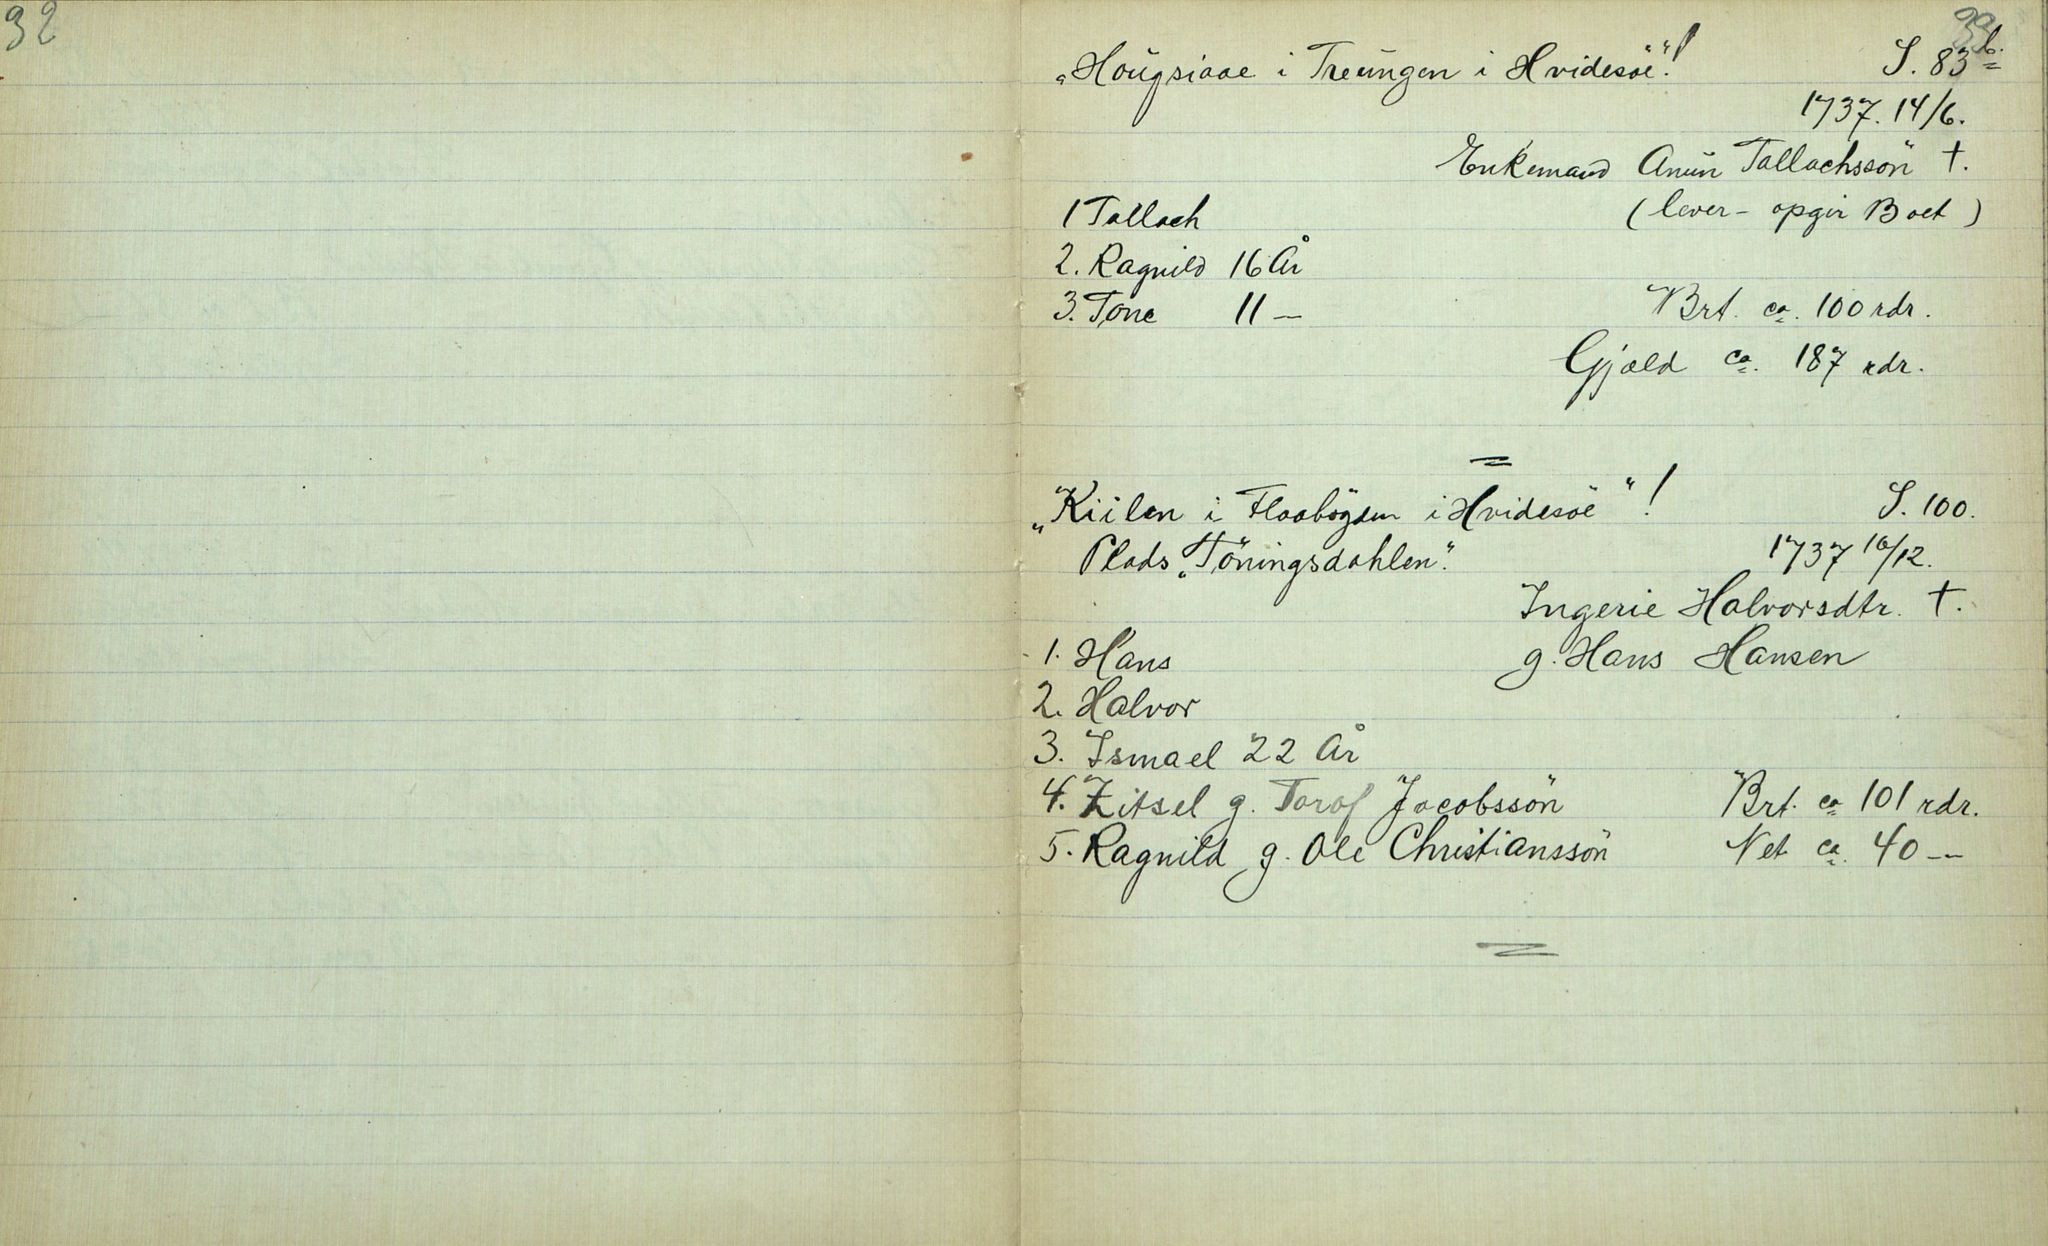 32
33
„Hoŭgsiaae i Treŭngen i Hvidesöe"! S. 83 b.
1737. 14/6.
Enkemand Anŭn Tallachssön †.
1 Tallach (lever - opgir Boet)
2. Ragnild 16 År
3. Tone 11 — Brt. ca. 100 rdr.
Gjæld ca. 187 rdr.
„Kiilen i Flaabögden i Hvidesöe"! S. 100.
Plads „Töningsdahlen". 1737 10/12.
Ingerie Halvorsdtr. †.
1. Hans g. Hans Hansen
2. Halvor
3. Ismael 22 År
4. Zitsel g. Torof Jacobssön Brt. ca 101 rdr.
5. Ragnild g. Ole Christianssön Net ca. 40 —